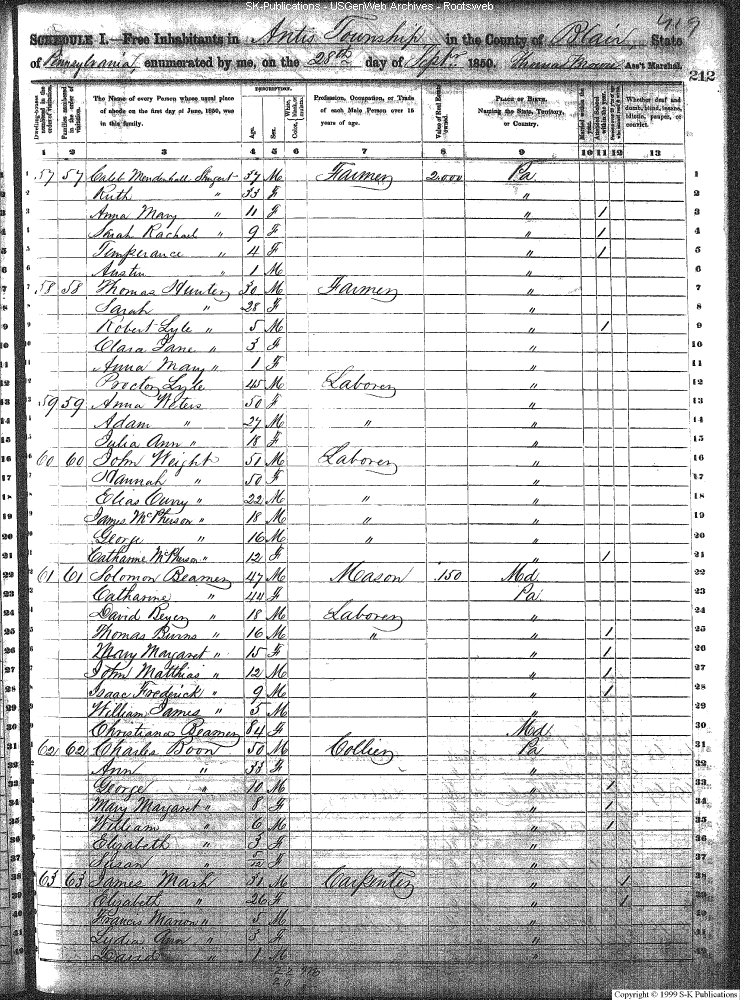 SK-Publications - USGenWeb Archives - Rootsweb
419
SCHEDULE I.—Free Inhabitants in Antis Township in the County of Blair State
of Pennsylvania, enumerated by me, on the 28th day of Sept. 1850. Thomas Ass't Marshal.
212
Dwelling-houses numbered in the order of visitation.
Families numbered in the order of visitation.
The Name of every Person whose usual place of abode on the first day of June, 1850, was in this family.
DESCRIPTION.
Age.
Sex.
White, black, or mulatto.
Color,
Profession, Occupation, or Trade of each Male Person over 15 years of age.
Value of Real Estate owned.
PLACE OF BIRTH. Naming the State, Territory, or Country.
Married within the year.
Attended School within the year.
Whether deaf and dumb, blind, insane, idiotic, pauper, or convict.
1 2 3 4 5 6 7 8 9 10 11 12 13
1 57 57 Caleb Mendenhall 37 M Farmer 2,000 Pa 1
2 Ruth " 33 F " 2
3 Anna Mary " 11 F " / 3
4 Sarah Rachael " 9 F " / 4
5 Temperance " 4 F " / 5
6 Austin " 1 M " 6
7 58 58 Thomas Hunter 30 M Farmer " 7
8 Sarah " 28 F " 8
9 Robert Lyle " 5 M " / 9
10 Clara Jane " 3 F " 10
11 Anna Mary " 1 F " 11
12 Proctor Lyle 45 M Laborer " 12
13 59 59 Anna Waters 50 F " 13
14 Adam " 27 M " " 14
15 Julia Ann " 18 F " 15
16 60 60 John Weight 51 M Laborer " 16
17 Hannah " 50 F " 17
18 Elias Curry " 22 M " " 18
19 James McPherson " 18 M " " 19
20 George " 16 M " " 20
21 Catharine McPherson " 12 F " / 21
22 61 61 Solomon Beamer 47 M Mason 150 Md 22
23 Catharine " 44 F Pa 23
24 David Beyer " 18 M Laborer " 24
25 Thomas Burns " 16 M " " / 25
26 Mary Margaret " 15 F " / 26
27 John Matthias " 12 M " / 27
28 Isaac Frederick " 9 M " / 28
29 William James " 5 M " 29
30 Christiana Beamer 84 F Md 30
31 62 62 Charles Boon 50 M Collier Pa 31
32 Ann " 38 F " 32
33 George " 10 M " / 33
34 Mary Margaret " 8 F " / 34
35 William " 6 M " / 35
36 Elizabeth " 3 F " 36
37 Susan " F " 37
38 63 63 James Mash 31 M Carpenter " / 38
39 Elizabeth " 26 F " / 39
40 Francis Marion " 5 M " 40
41 Lydia Ann " 3 F " 41
42 David " 1 M " 42
Copyright © 1999 S-K Publications